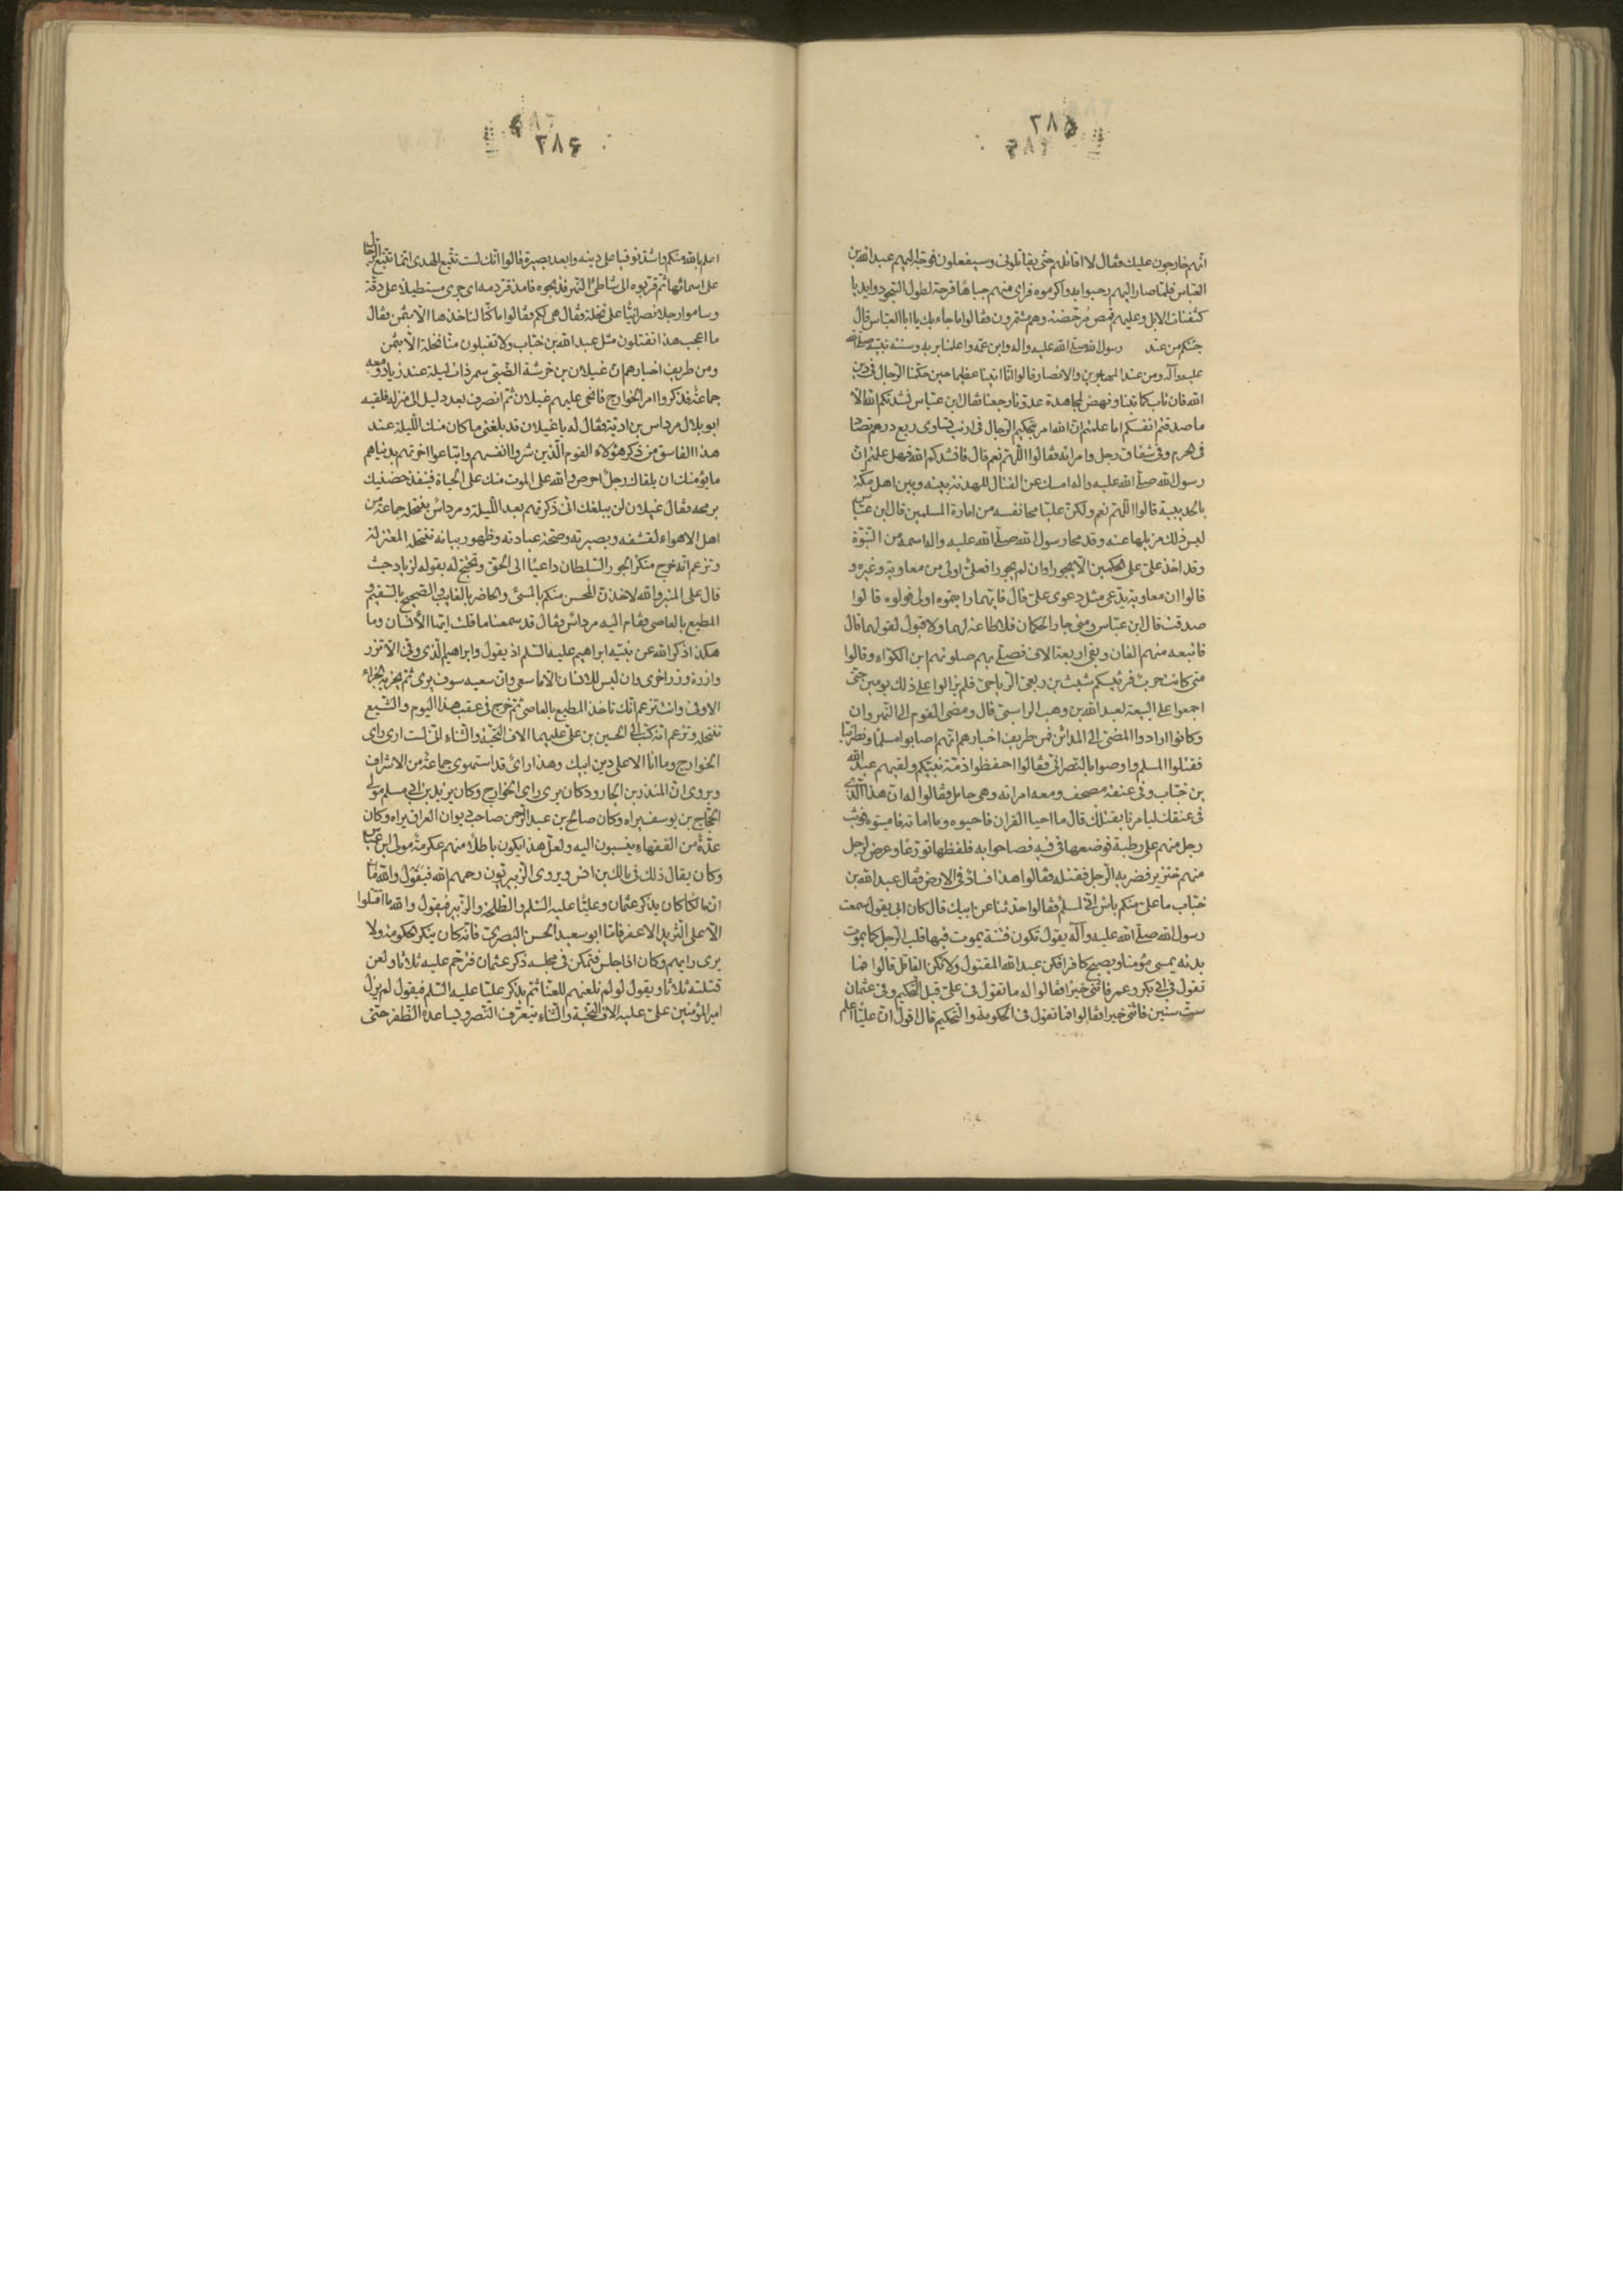 ٢٨۵
انهم خارجون عليك فقال لا اقاتلهم حتى يقاتلونى وسيفعلون فوجه اليهم عبد الله بن
العباس فلما صار اليهم رحبوا به واكرموه فراى منهم جباها قرحة لطول السجود وايديا
كثفنات الابل وعليهم قمص مرحضة وهم مشمرون فقالوا ما جاء بك يا ابا العباس قال
جئتكم من عند رسول الله صلى الله عليه واله وابن عمه واعلمنا بربه وسنة نبيه صلى الله
عليه وآله ومن عند المهاجرين والانصار قالوا انا اتينا عظيما حين حكمنا الرجال فى دين
الله فان تاب كما تبنا ونهض لمجاهدة عدونا رجعنا فقال ابن عباس نشدتكم الله الا
ما صدقتم انفسكم اما علمتم ان الله امر بتحكيم الرجال فى ارنب تساوى ربع درهم تصاد
فى الحرم وفى شقاق رجل وامراته فقالوا اللهم نعم قال فانشدكم الله فهل علمتم ان
رسول الله صلى الله عليه واله امسك عن القتال للهدنة بينه وبين اهل مكة
بالحديبية قالوا اللهم نعم ولكن عليا محا نفسه من امارة المسلمين قال ابن عباس
ليس ذلك مزيلها عنه وقد محا رسول الله صلى الله عليه واله اسمه من النبوة
وقد اخذ على على الحكمين الا يجورا وان لم يجورا فعلى اولى من معاوية وغيره و
قالوا ان معاوية يدعى مثل دعوى على قال فايهما رايتموه اولى فولوه قالوا
صدقت قال ابن عباس ومتى جار الحكمان فلا طاعة لهما ولا قبول لقولهما قال
فاتبعه منهم الفان وبقى اربعة الاف فصلى بهم صلوتهم ابن الكواء وقالوا
متى كانت حرب فرئيسكم شبث بن ربعى الرياحى فلم يزالوا على ذلك يومين حتى
اجمعوا على البيعة لعبد الله بن وهب الراسبى قال ومضى القوم الى النهروان
وكانوا ارادوا المضى الى المدائن فمن طريف اخبارهم انهم اصابوا مسلما ونصرانيا
فقتلوا المسلم واوصوا بالنصرانى فقالوا احفظوا ذمة نبيكم ولقيهم عبد الله
بن خباب وفى عنقه مصحف ومعه امراته وهى حامل فقالوا له ان هذا الذى
فى عنقك ليامرنا بقتلك قال ما احيا القران فاحيوه وما اماته فاميتوه فوثب
رجل منهم على رطبة فوضعها فى فيه فصاحوا به فلفظها تورعا وعرض لرجل
منهم خنزير فضربه الرجل فقتله فقالوا هذا فساد فى الارض فقال عبد الله بن
خباب ما على منكم باس انى لمسلم فقالوا حدثنا عن ابيك قال كان ابى يقول سمعت
رسول الله صلى الله عليه وآله يقول تكون فتنة يموت فيها قلب الرجل كما يموت
بدنه يمسى مؤمنا ويصبح كافرا فكن عبد الله المقتول ولا تكن القاتل قالوا فما
تقول فى ابى بكر وعمر فاثنى خيرا فقالوا له ما تقول فى على قبل التحكيم وفى عثمان
ست سنين فاثنى خيرا فقالوا فما تقول فى الحكومة والتحكيم قال اقول ان عليا اعلم
٢٨۶
اعلم بالله منكم واشد توقيا على دينه وابعد بصيرة قالوا انك لست تتبع الهدى انما تتبع الرجال
على اسمائها ثم قربوه الى شاطئ النهر فذبحوه فامذقر دمه اى جرى مستطيلا على دقة
وساموا رجلا نصرانيا على نخلة فقال هى لكم فقالوا ما كنا لناخذها الا بثمن فقال
ما اعجب هذا تقتلون مثل عبد الله بن خباب ولا تقبلون منا نخلة الا بثمن
ومن طريف اخبارهم ان غيلان بن خرشة الضبى سمر ذات ليلة عند زياد ومعه
جماعة فذكروا امر الخوارج فانحى عليهم غيلان ثم انصرف بعد ليل الى منزله فلقيه
ابو بلال مرداس بن ادية فقال له يا غيلان قد بلغنى ما كان منك الليلة عند
هذا الفاسق من ذكر هؤلاء القوم الذين شروا انفسهم وابتاعوا اخرتهم بدنياهم
ما يؤمنك ان يلقاك رجل احرص والله على الموت منك على الحياة فينفذ حضنيك
برمحه فقال غيلان لن يبلغك انى ذكرتهم بعد الليلة ومرداس ينتحله جماعة من
اهل الاهواء لقشفه وبصيرته وصحة عبادته وظهور بيانه تنتحله المعتزلة
وتزعم انه خرج منكرا لجور السلطان داعيا الى الحق وتحتج له بقوله لزياد حيث
قال على المنبر والله لاخذن المحسن منكم بالمسئ والحاضر بالغايب والصحيح بالسقيم و
المطيع بالعاصى فقام اليه مرداس فقال قد سمعنا ما قلت ايها الانسان وما
هكذا ذكر الله عن نبيه ابراهيم عليه السلم اذ يقول وابراهيم الذى وفى الا تزر
وازرة وزر اخرى وان ليس للانسان الا ما سعى وان سعيه سوف يرى ثم يجزيه الجزاء
الاوفى وانت تزعم انك تاخذ المطيع بالعاصى ثم خرج فى عقب هذا اليوم والشيع
تنتحله وتزعم انه كتب الى الحسين بن على عليهما الاف التحية والثناء انى لست ارى راى
الخوارج وما انا الا على دين ابيك وهذا راى قد استهوى جماعة من الاشراف
ويروى ان المنذر بن الجارود كان يرى راى الخوارج وكان يزيد بن ابى مسلم مولى
الحجاج بن يوسف يراه وكان صالح بن عبد الرحمن صاحب ديوان العراق يراه وكان
عدة من الفقهاء ينسبون اليه ولعل هذا يكون باطلا منهم عكرمة مولى ابن عباس
وكان يقال ذلك فى مالك بن انس ويروى الزبيريون رحمهم الله
ان مالكا كان يذكر عثمان وعليا عليه السلم والطلحة والزبير فيقول والله ما اقتتلوا
الا على الثريد الاعفر فاما ابو سعيد الحسن البصرى فانه كان ينكر الحكومة ولا
يرى رايهم وكان اذا جلس فتمكن فى مجلسه ذكر عثمان فترحم عليه ثلاثا ولعن
قتلته ثلاثا ويقول لو لم نلعنهم للعنا ثم يذكر عليا عليه السلم فيقول لم يزل
امير المؤمنين على عليه الاف التحية والثناء يتعرف النصر ويساعده الظفر حتى